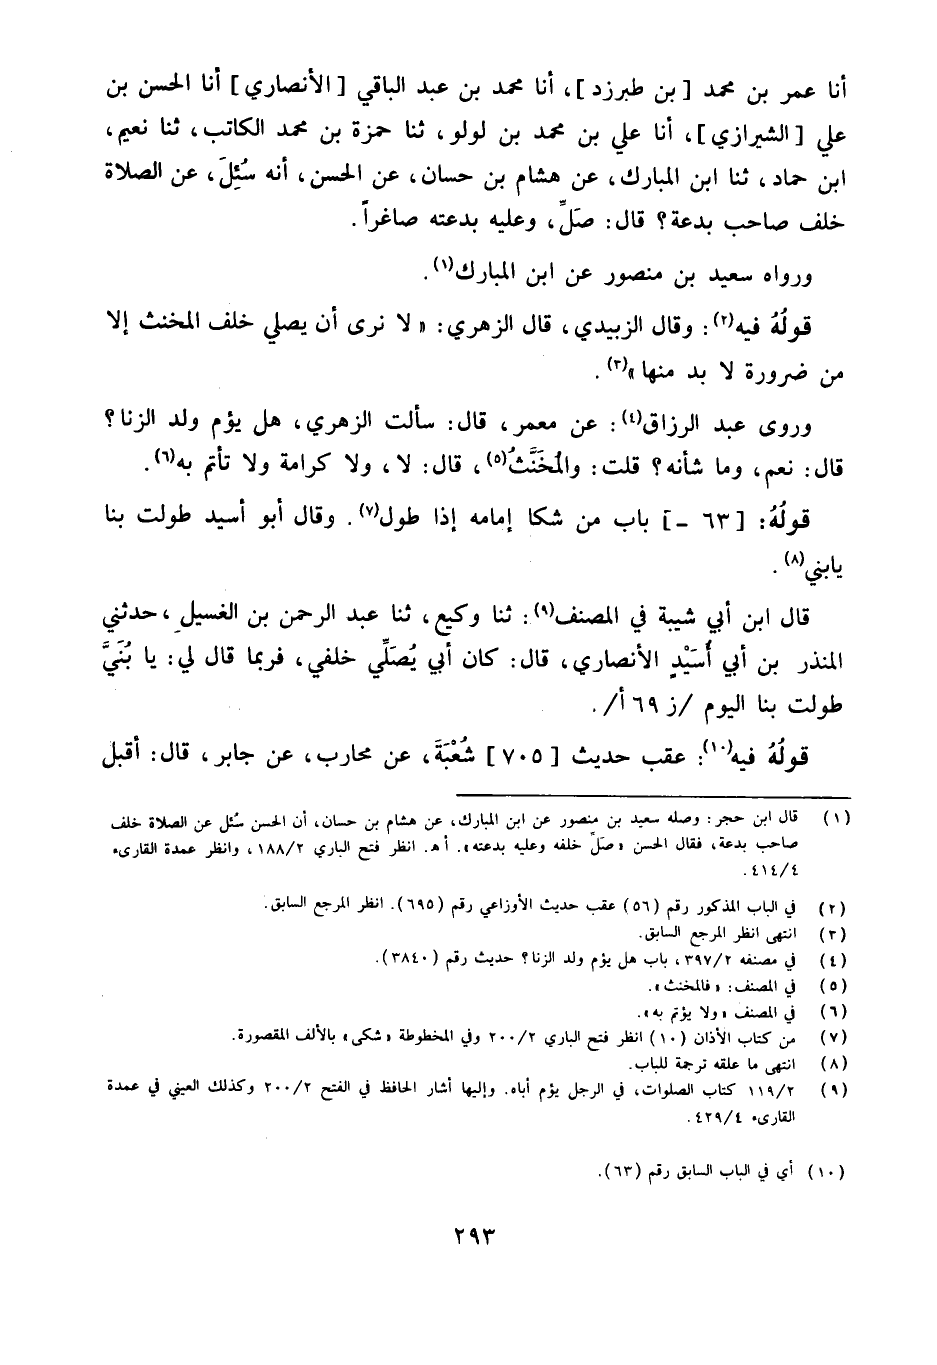 أنا عمر بن محمد [ بن طبرزد ]، أنا محمد بن عبد الباقي [ الأنصاري ] أنا الحسن بن
علي [ الشيرازي ]، أنا علي بن محمد بن لولو، ثنا حمزة بن محمد الكاتب، ثنا نعيم،
ابن حماد، ثنا ابن المبارك، عن هشام بن حسان، عن الحسن، أنه سُئِلَ، عن الصلاة
خلف صاحب بدعة؟ قال: صَلِّ، وعليه بدعته صاغراً.
ورواه سعيد بن منصور عن ابن المبارك(١).
قولُهُ فيه(٢): وقال الزبيدي، قال الزهري: « لا نرى أن يصلي خلف المخنث إلا
من ضرورة لا بد منها »(٣).
وروى عبد الرزاق(٤): عن معمر، قال: سألت الزهري، هل يؤم ولد الزنا؟
قال: نعم، وما شأنه؟ قلت: والمُخَنَّثُ(٥)، قال: لا، ولا كرامة ولا تأتم به(٦).
قولُهُ: [ ٦٣ - ] باب من شكا إمامه إذا طول(٧). وقال أبو أسيد طولت بنا
يابني(٨).
قال ابن أبي شيبة في المصنف(٩): ثنا وكيع، ثنا عبد الرحمن بن الغسيل، حدثني
المنذر بن أبي أُسَيْدٍ الأنصاري، قال: كان أبي يُصَلِّي خلفي، فربما قال لي: يا بُنَيَّ
طولت بنا اليوم /ز ٦٩ أ/.
قولُهُ فيه(١٠): عقب حديث [ ٧٠٥ ] شُعْبَةَ، عن محارب، عن جابر، قال: أقبل
(١) قال ابن حجر: وصله سعيد بن منصور عن ابن المبارك، عن هشام بن حسان، أن الحسن سُئل عن الصلاة خلف
صاحب بدعة، فقال الحسن « صَلِّ خلفه وعليه بدعته ». أ هـ. انظر فتح الباري ١٨٨/٢، وانظر عمدة القارىء
٤١٤/٤.
(٢) في الباب المذكور رقم (٥٦) عقب حديث الأوزاعي رقم (٦٩٥). انظر المرجع السابق.
(٣) انتهى انظر المرجع السابق.
(٤) في مصنفه ٣٩٧/٢، باب هل يؤم ولد الزنا؟ حديث رقم (٣٨٤٠).
(٥) في المصنف: « فالمخنث ».
(٦) في المصنف « ولا يؤتم به ».
(٧) من كتاب الأذان (١٠) انظر فتح الباري ٢٠٠/٢ وفي المخطوطة « شكى » بالألف المقصورة.
(٨) انتهى ما علقه ترجمة للباب.
(٩) ١١٩/٢ كتاب الصلوات، في الرجل يؤم أباه. وإليها أشار الحافظ في الفتح ٢٠٠/٢ وكذلك العيني في عمدة
القارىء ٤٢٩/٤.
(١٠) أي في الباب السابق رقم (٦٣).
٢٩٣